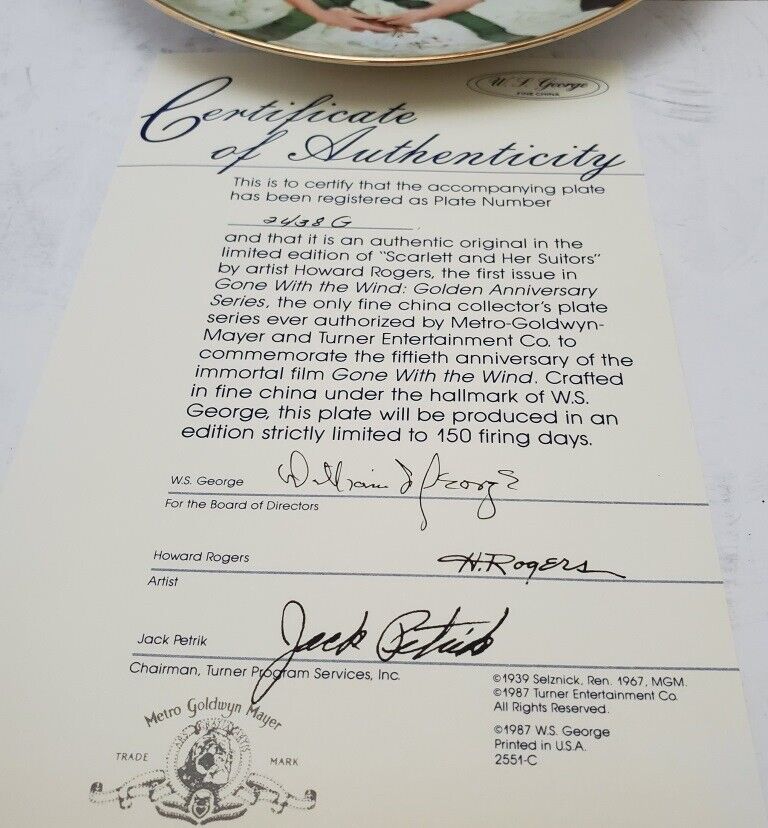 W.S. George
FINE CHINA
Certificate
of Authenticity
This is to certify that the accompanying plate
has been registered as Plate Number
2438 G
and that it is an authentic original in the
limited edition of "Scarlett and Her Suitors"
by artist Howard Rogers, the first issue in
Gone With the Wind: Golden Anniversary
Series, the only fine china collector's plate
series ever authorized by Metro-Goldwyn-
Mayer and Turner Entertainment Co. to
commemorate the fiftieth anniversary of the
immortal film Gone With the Wind. Crafted
in fine china under the hallmark of W.S.
George, this plate will be produced in an
edition strictly limited to 150 firing days.
W.S. George William S George
For the Board of Directors
Howard Rogers H. Rogers
Artist
Jack Petrik Jack Petrik
Chairman, Turner Program Services, Inc.
©1939 Selznick. Ren. 1967, MGM.
©1987 Turner Entertainment Co.
All Rights Reserved.
©1987 W.S. George
Printed in U.S.A.
2551-C
Metro Goldwyn Mayer
TRADE MARK